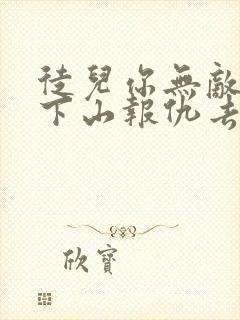 徒兒你無敵
下山報仇去
欣寶